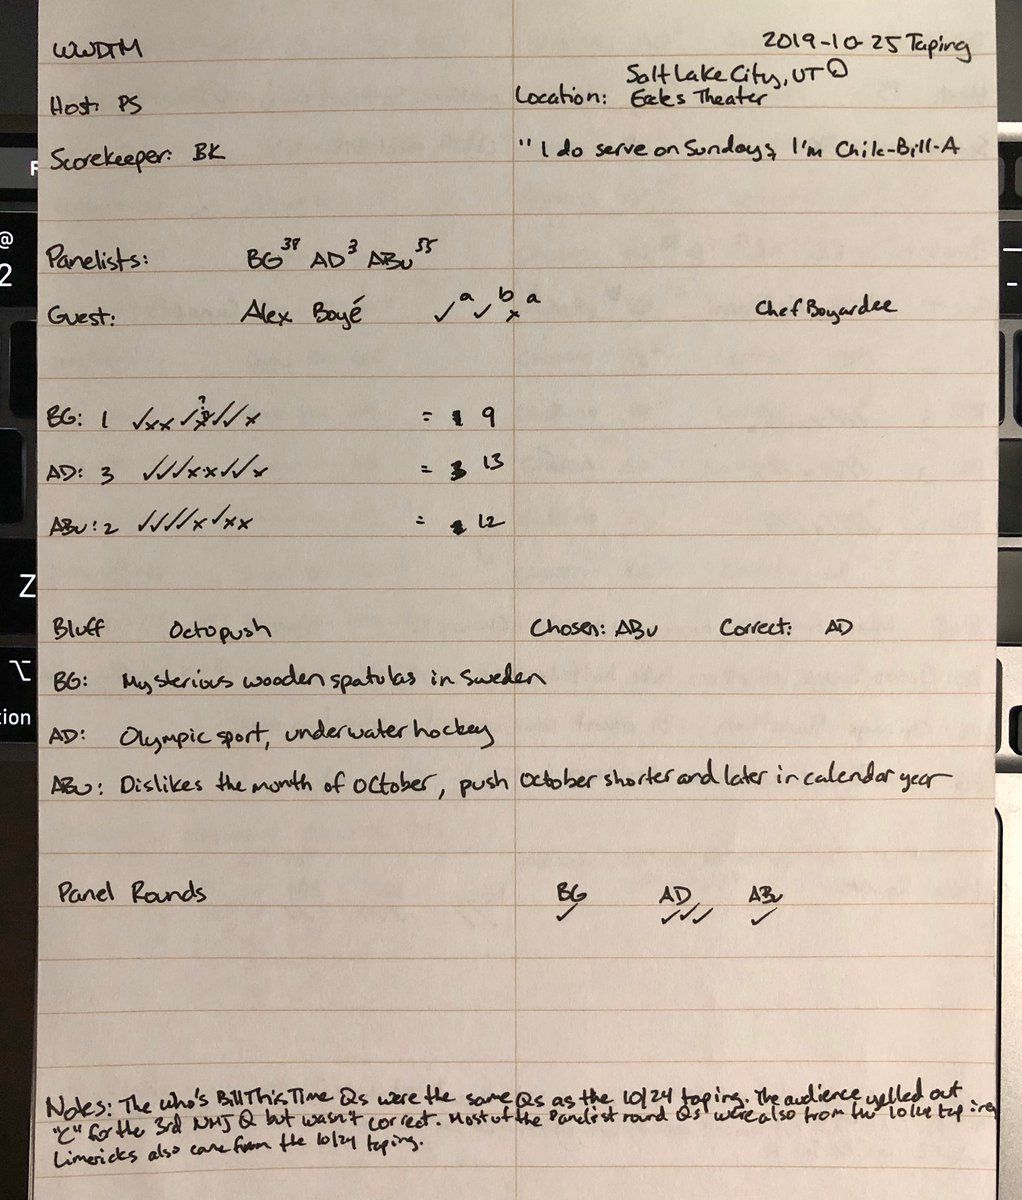 WWDTM 2019-10-25 Taping
Salt Lake City, UT
Host: PS Location: Eccles Theater
Scorekeeper: BK "I do serve on Sundays, I'm Chik-Bill-A
Panelists: BG 38 AD 3 ABu 55
Guest: Alex Boyé ✓a ✓b xa Chef Boyardee
BG: 1 = 9
AD: 3 ✓✓✓xx✓✓x = 3 13
ABu: 2 ✓✓✓✓x✓xx = 12
Bluff Octopush Chosen: ABu Correct: AD
BG: Mysterious wooden spatulas in Sweden
AD: Olympic sport, underwater hockey
ABu: Dislikes the month of October, push October shorter and later in calendar year
Panel Rounds BG AD ABu
✓ ✓✓✓ ✓
Notes: The Who's Bill This Time Qs were the same Qs as the 10/24 taping. The audience yelled out
"C" for the 3rd NMJ Q but wasn't correct. Most of the Panelist round Qs were also from the taping
Limericks also came from the 10/24 taping.
@
2
Z
⌥
tion